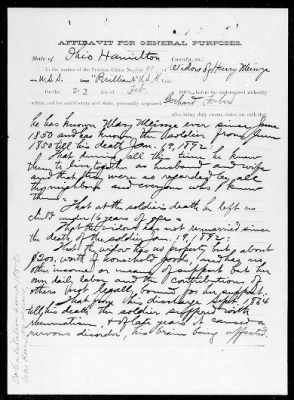 AFFIDAVIT FOR GENERAL PURPOSES.
State of Ohio Hamilton County, ss:
In the matter of the Pension Claim No. of Widow of Henry
U.S.S. "Brilliant" U.S.N.
On the 23 day of Feb. before the undersigned authority
within and for said County and State, personally appeared Gerhard
who, being duly sworn, states on oath that
he has known Mary since June
1850 and has known the soldier from June
1850 till his death Jan. 19, 1892.
That during all they time he knew
them to live together as husband and wife
and that they were so regarded by all
the neighbors and everyone who knew
them.
That at the soldier's death he left no
child under 16 years of age.
That the widow has not remarried since
the death of the soldier 19, 1892.
That the widow has no property but about
$200. worth of household goods, and has no
other income or means of support but her
own daily labor and the contributions of
others not legally bound for her support.
That from his discharge Sept. 1864
till his death the soldier suffered with
rheumatism, & of late years it caused a
nervous disorder, his brain being affected